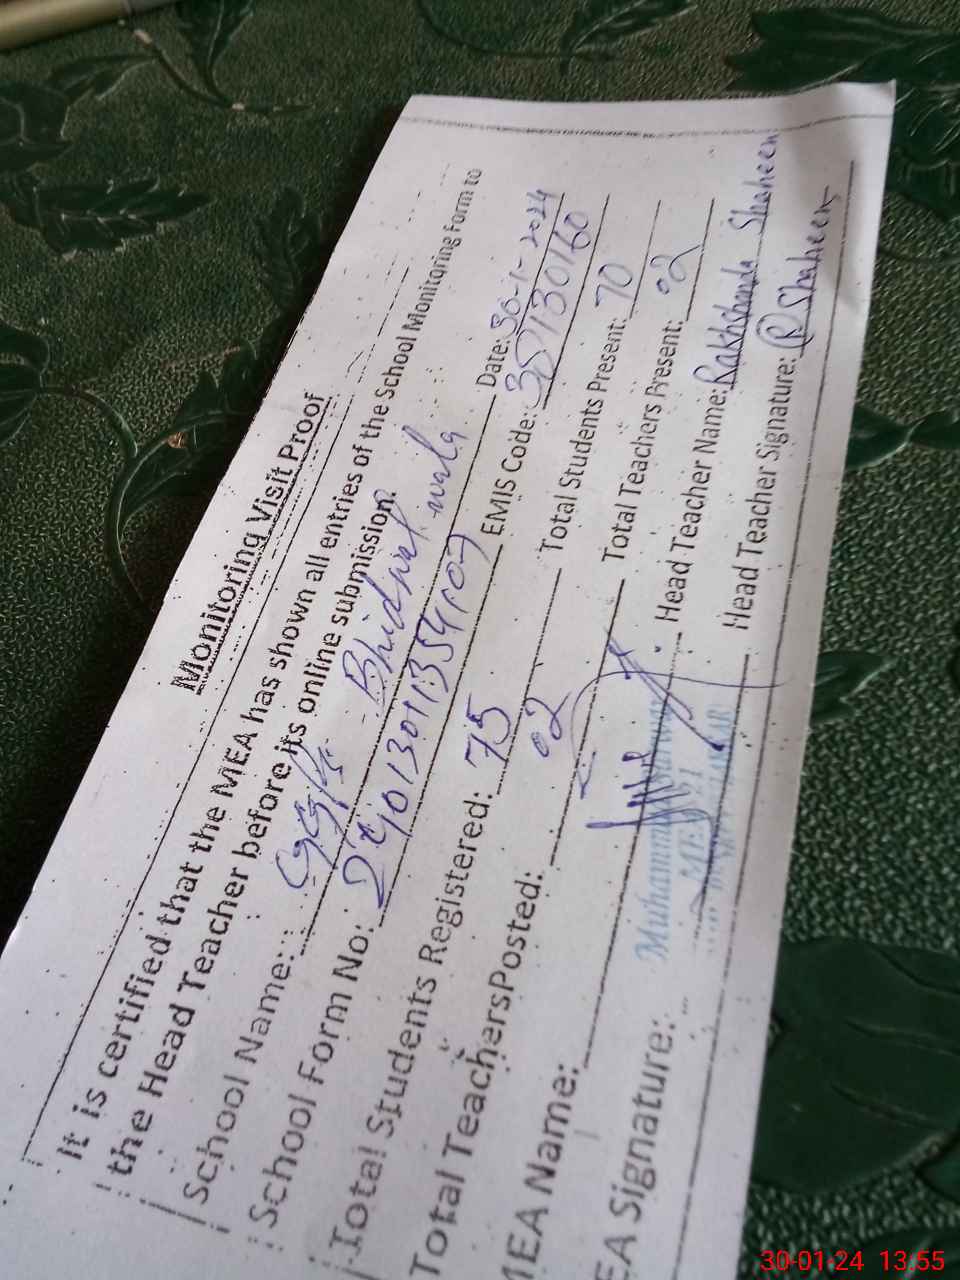 Monitoring Visit Proof
It is certified that the MEA has shown all entries of the School Monitoring Form to
the Head Teacher before its online submission.
School Name: GGPS Bhidwal wala Date: 30-1-2024
School Form No: EMIS Code: 38130160
Total Students Registered: 75 Total Students Present: 70
Total TeachersPosted: 02 Total Teachers Present: 02
MEA Name: Head Teacher Name: Rakhshanda Shaheen
EA Signature: Head Teacher Signature: R Shaheen
Muhammad
MEA
30-01-24 13:55